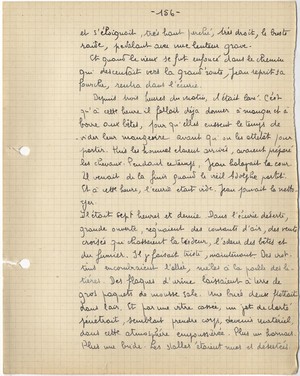 -186-
et s'éloignait, très haut perché, très droit, le buste
raide, pédalant avec une lenteur grave.
Et quand le vieux se fut enfoncé dans le chemin
qui descendait vers la grand'route, Jean reprit sa
fourche, rentra dans l'écurie.
Depuis trois heures du matin, il était levé. C'est
qu'à cette heure il fallait déjà donner à manger et à
boire aux bêtes, pour qu'elles eussent le temps de
vider leur mangeoire avant qu'on les attelât pour
partir. Puis les hommes étaient arrivés, avaient préparé
les chevaux. Pendant ce temps, Jean balayait la cour
et
Et à cette heure, l'écurie était vide. Jean pouvait la netto-
yer
Il était sept heures et demie. Dans l'écurie déserte,
grande ouverte, régnaient des courants d'air, des vents
croisés qui chassaient la tiédeur, l'odeur des bêtes et
du fumier. Il y faisait triste, maintenant. Des crot-
tins encombraient l'allée, mêlés à la paille des li-
tières. Des flaques d'urine laissaient à terre de
gros paquets de mousse sale. Une buée dense flottait
dans l'air. Et par une vitre cassée, un jet de clarté
pénétrait, semblant prendre corps, devenir matériel,
dans cette atmosphère empoussiérée. Plus un harnais.
Plus une bride. Les stalles étaient nues et désertes.